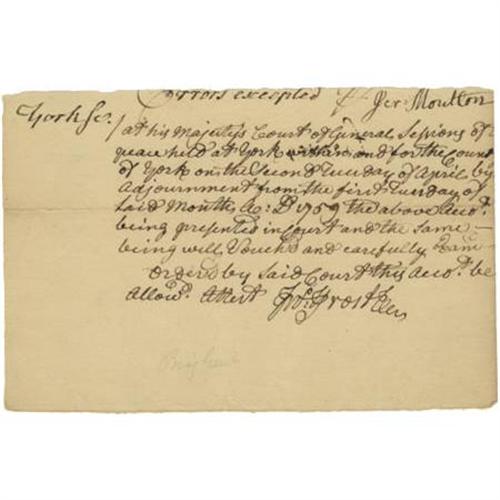 Errors excepted Jer: Moulton
York sc./ at his Majestys Court of General Sessions of
peace held at York within and for the County
of York on the Second Tuesday of April by
Adjournment from the first Tuesday of
said Month A: D 1759 the above Acco.t
being presented in Court and the same
being well Vouchd and carefully Exam
Ordered by said Court this Acco.t be
allow.d Attest Jn.o Frost Cler